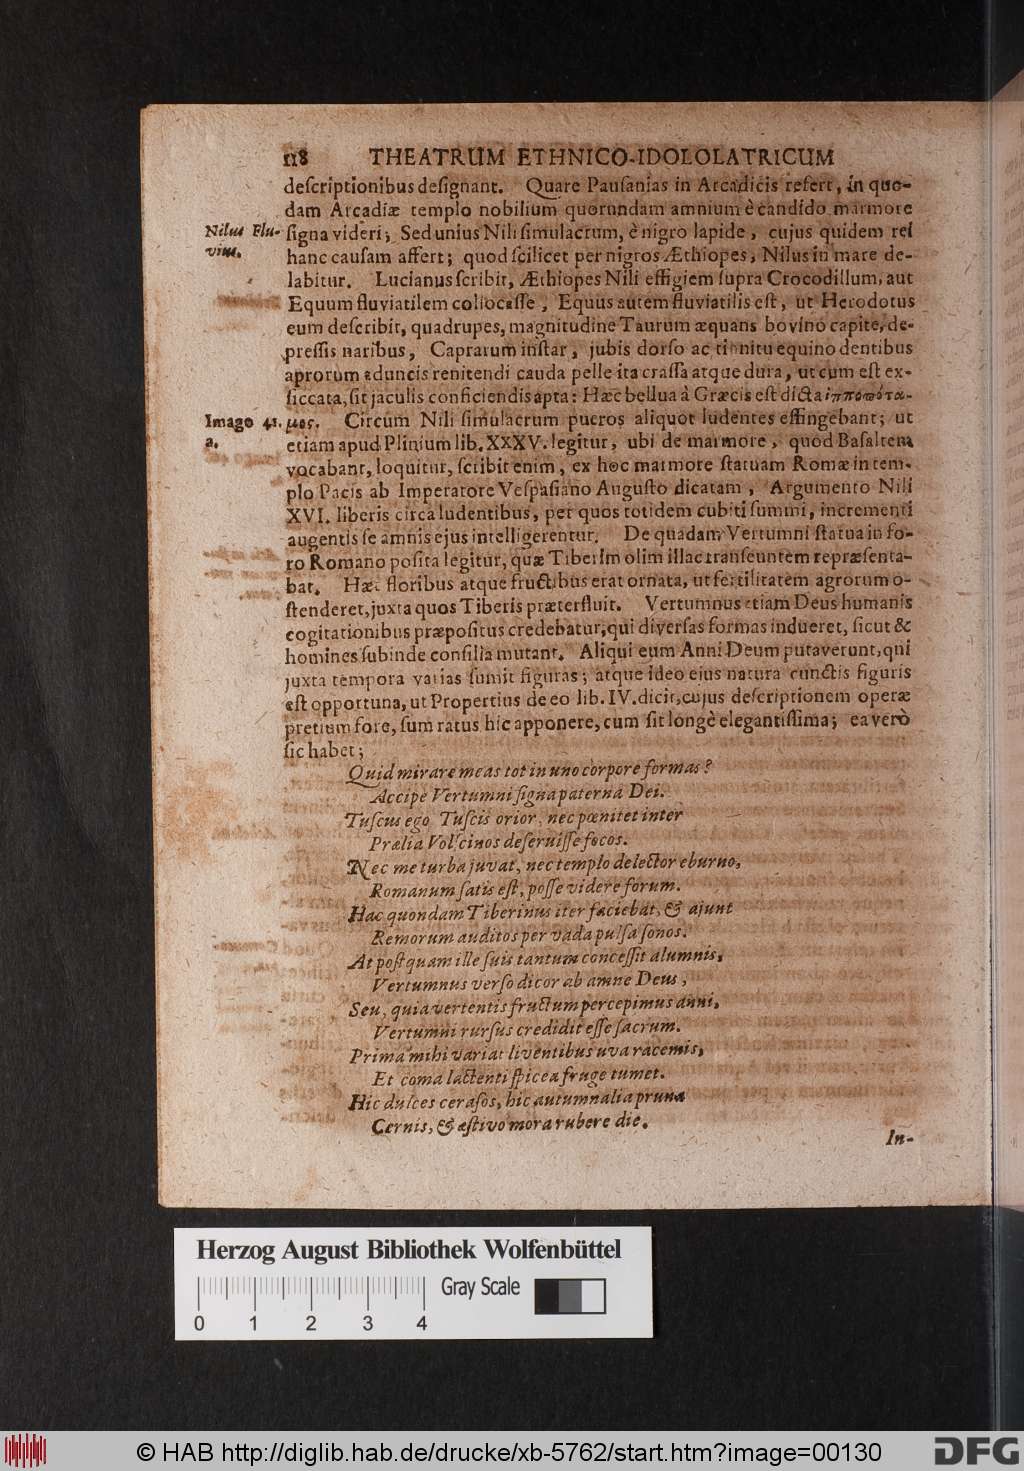 118 THEATRUM ETHNICO-IDOLOLATRICUM
deſcriptionibus deſignant. Quare Pauſanias in Arcadicis refert, in quo-
dam Arcadiæ templo nobilium quorundam amnium è candido marmore
Nilus Flu-
vius.
ſigna videri; Sed unius Nili ſimulacrum, è nigro lapide, cujus quidem rei
hanc cauſam affert; quod ſcilicet per nigros Æthiopes, Nilus in mare de-
labitur. Lucianus ſcribit, Æthiopes Nili effigiem ſupra Crocodillum, aut
Equum fluviatilem collocaſſe, Equus autem fluviatilis eſt, ut Herodotus
eum deſcribit, quadrupes, magnitudine Taurum æquans bovino capite, de-
preſſis naribus, Caprarum inſtar, jubis dorſo ac tinnitu equino dentibus
aprorum aduncis renitendi cauda pelle ita craſſa atque dura, ut cum eſt ex-
ſiccata, ſit jaculis conficiendis apta: Hæc bellua â Græcis eſt dicta ἱπποπότα-
Imago 41.
a.
μος. Circum Nili ſimulacrum pueros aliquot ludentes effingebant; ut
etiam apud Plinium lib. XXXV. legitur, ubi de marmore, quod Baſaltem
vocabant, loquitur, ſcribit enim, ex hoc marmore ſtatuam Romæ in tem-
plo Pacis ab Imperatore Veſpaſiano Auguſto dicatam, Argumento Nili
XVI. liberis circa ludentibus, per quos totidem cubiti ſummi, incrementi
augentis ſe amnis ejus intelligerentur. De quadam Vertumni ſtatua in fo-
ro Romano poſita legitur, quæ Tiberim olim illac tranſeuntem repræſenta-
bat. Hæc floribus atque fructibus erat ornata, ut fertilitatem agrorum o-
ſtenderet, juxta quos Tiberis præterfluit. Vertumnus etiam Deus humanis
cogitationibus præpoſitus credebatur, qui diverſas formas indueret, ſicut &
homines ſubinde conſilia mutant. Aliqui eum Anni Deum putaverunt, qui
juxta tempora varias ſumit figuras; atque ideo ejus natura cunctis figuris
eſt opportuna, ut Propertius de eo lib. IV. dicit, cujus deſcriptionem operæ
pretium fore, ſum ratus hic apponere, cum ſit longè elegantiſſima; ea verò
ſic habet;
Quid mirare meas tot in uno corpore formas?
Accipe Vertumni ſigna paterna Dei.
Tuſcus ego Tuſcis orior, nec pœnitet inter
Prælia Volſcinos deſeruiſſe focos.
Nec me turba juvat, nec templo delector eburno,
Romanum ſatis eſt, poſſe videre forum.
Hac quondam Tiberinus iter faciebat, & ajunt
Remorum auditos per vada pulſa ſonos.
At poſtquam ille ſuis tantum conceſſit alumnis,
Vertumnus verſo dicor ab amne Deus,
Seu, quia vertentis fructum percepimus anni,
Vertumni rurſus credidit eſſe ſacrum.
Prima mihi variat liventibus uva racemis,
Et coma lactenti ſpicea fruge tumet.
Hic dulces ceraſos, hic autumnalia pruna
Cernis, & æſtivo mora rubere die.
In-
Herzog August Bibliothek Wolfenbüttel
Gray Scale
0 1 2 3 4
© HAB http://diglib.hab.de/drucke/xb-5762/start.htm?image=00130
DFG